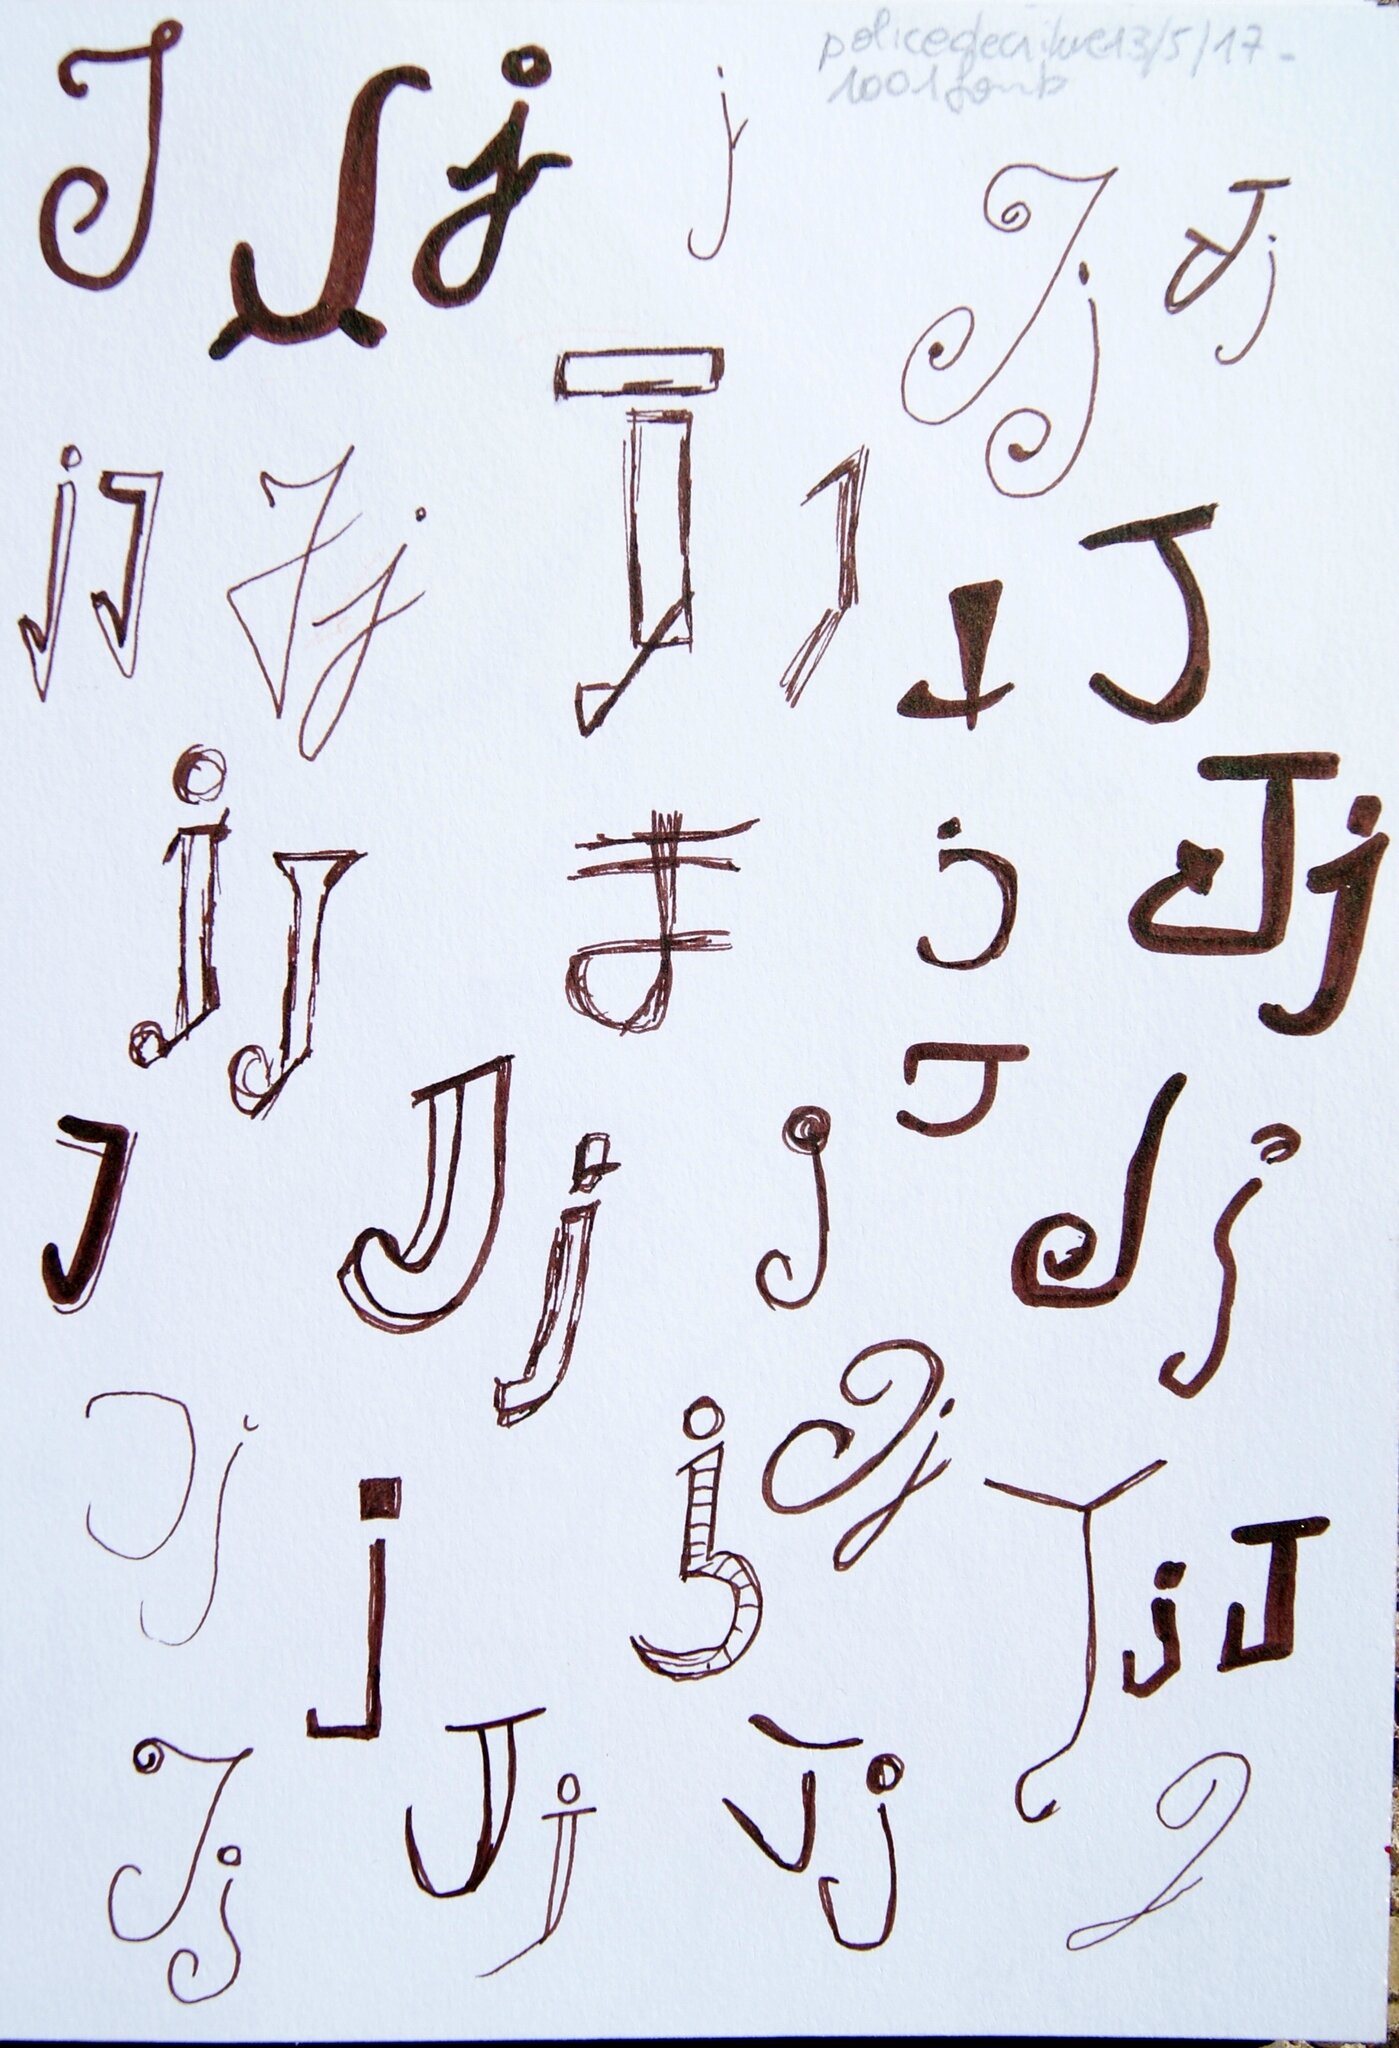 policedecriture13/5/17-
1001fonts
J J j j
J j J j
j J J j J J j J
j J J j J j
J J j j J J j
J j j j J j J j J
J j J j J j J